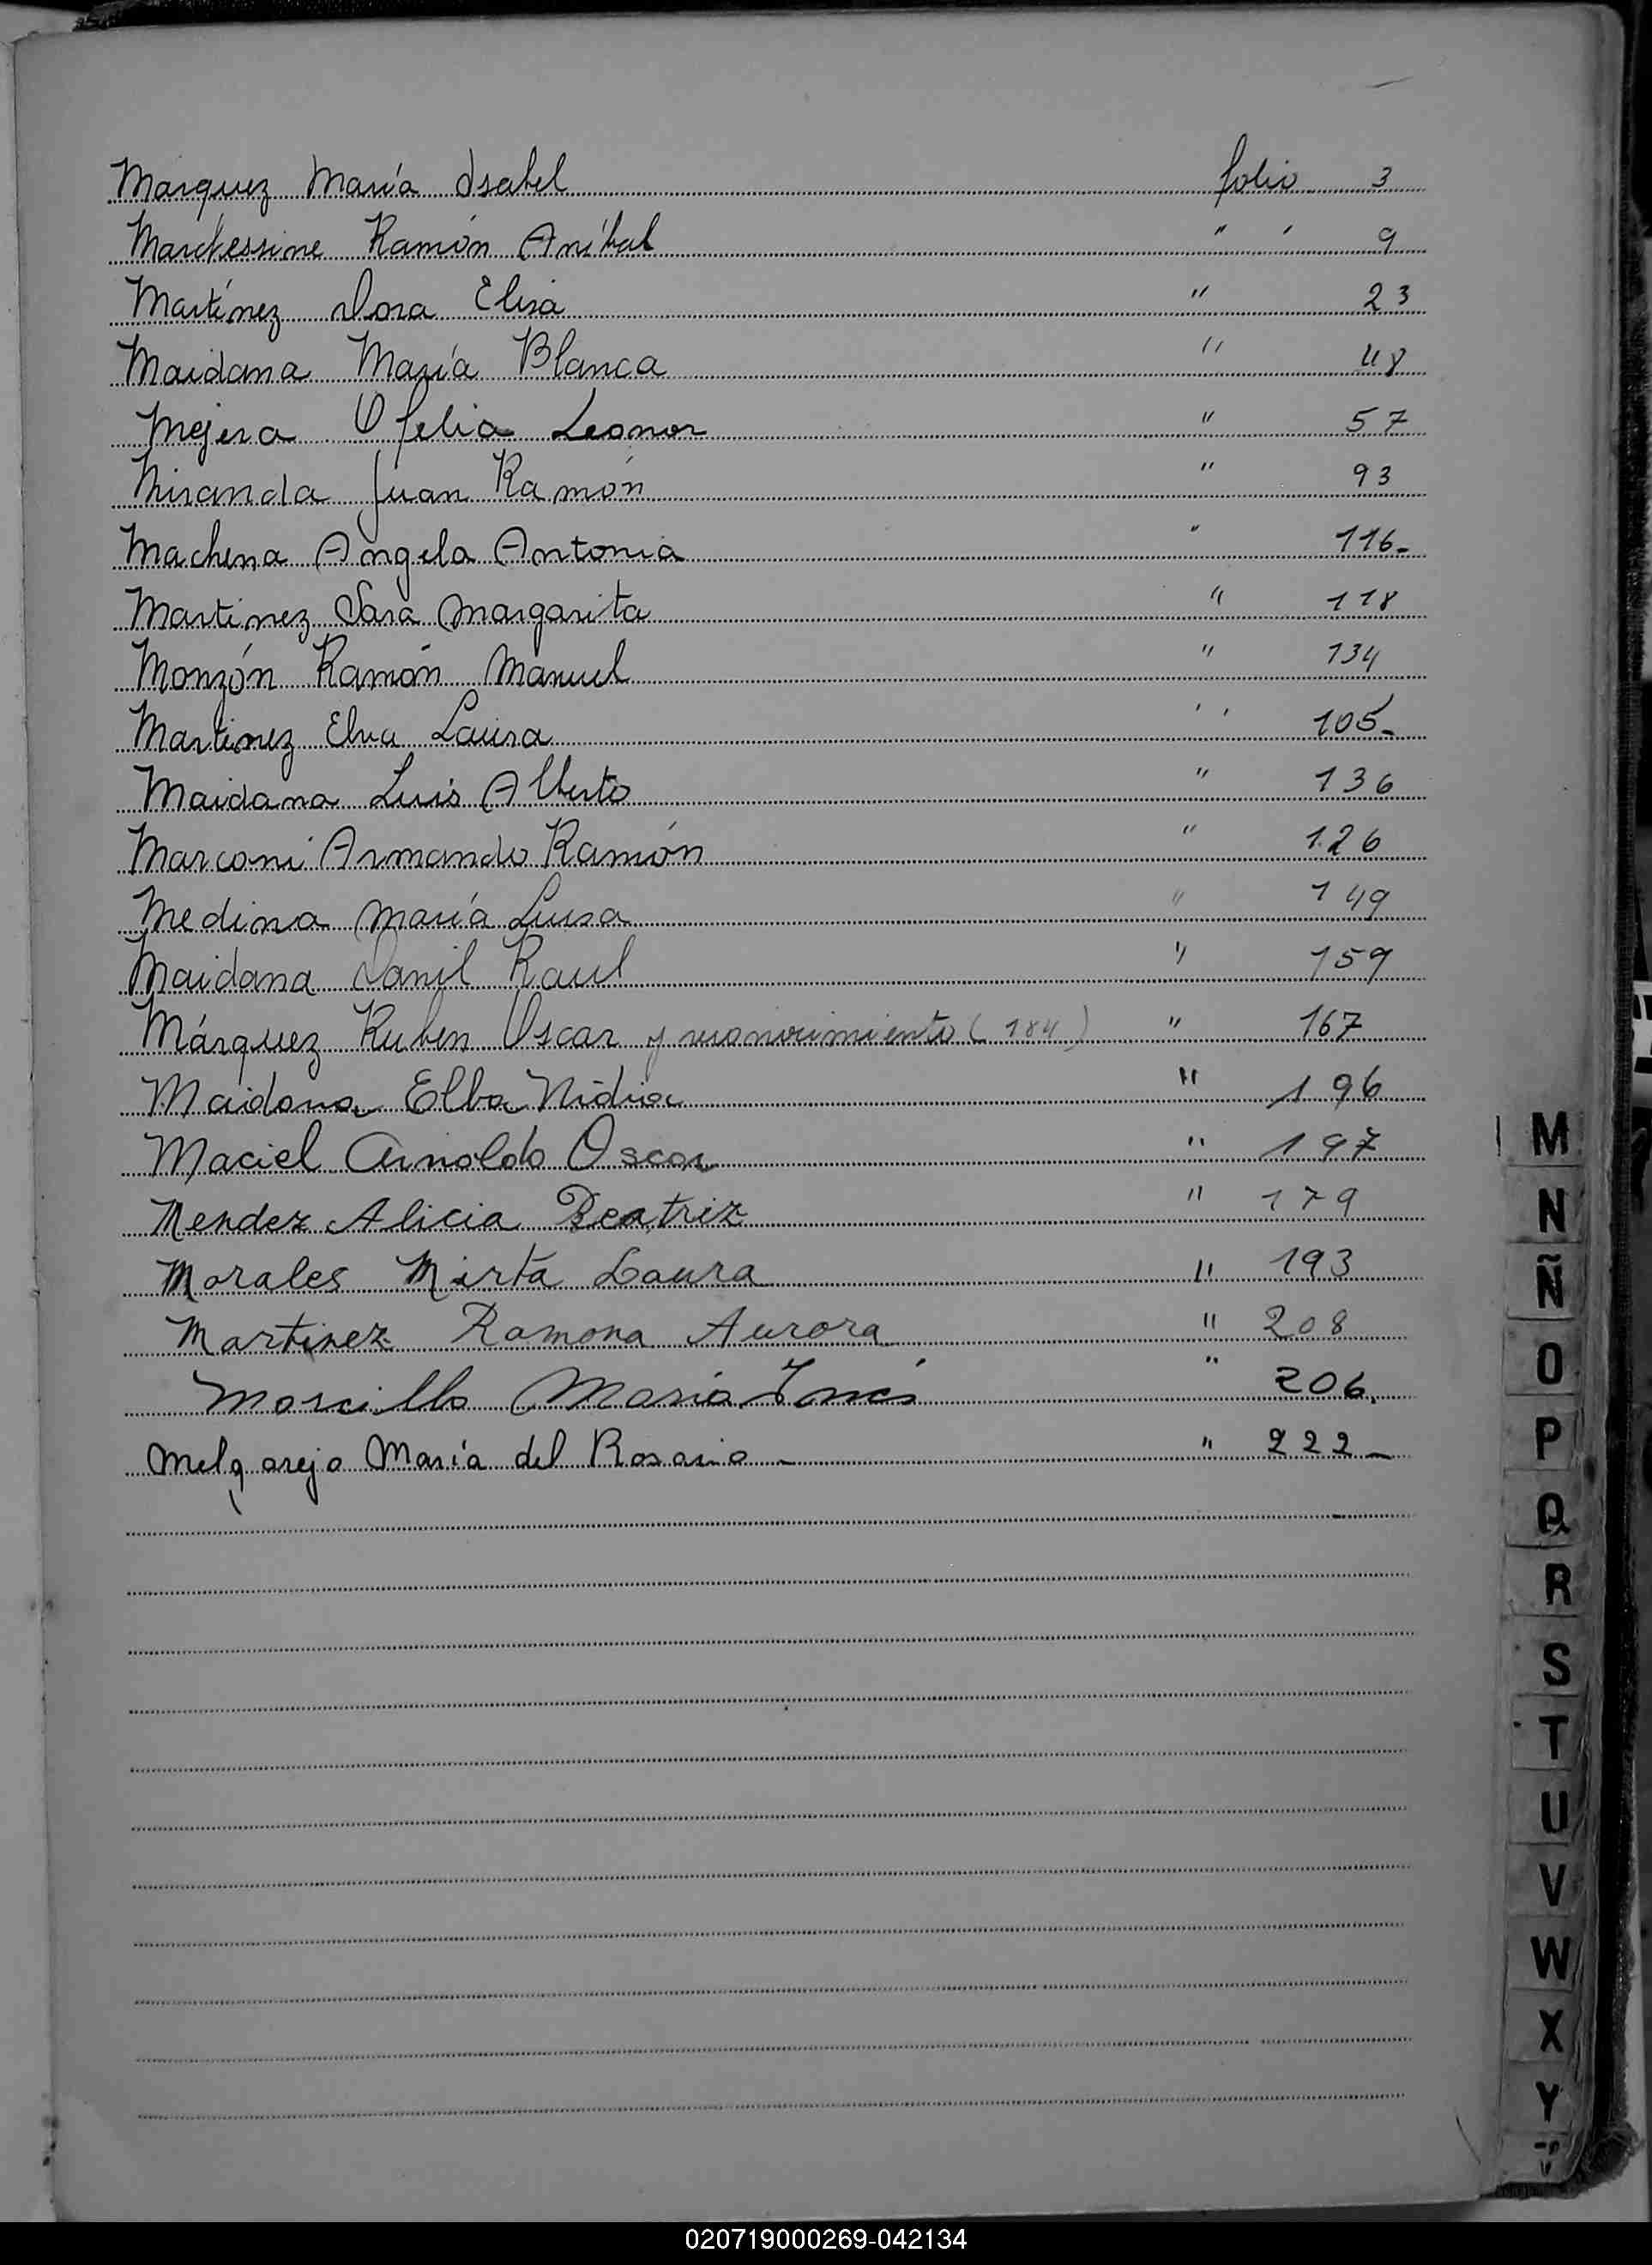 Marquez María Isabel folio 3
Marchessine Ramón Aníbal " " 9
Martínez Dora Elisa " 23
Maidana María Blanca " 48
Mejera Ofelia Leonor " 57
Miranda Juan Ramón " 93
Machena Angela Antonia " 116-
Martinez Sara Margarita " 118
Monzón Ramón Manuel " 134
Martinez Elva Laura " 105-
Maidana Luis Alberto " 136
Marconi Armando Ramón " 126
Medina María Luisa " 149
Maidana Danil Raul " 159
Márquez Ruben Oscar y reconocimiento (184) " 167
Maidana Elba Nidia " 196
Maciel Arnoldo Oscar " 197
Mendez Alicia Beatriz " 179
Morales Mirta Laura " 193
Martinez Ramona Aurora " 208
Morcillo María Inés " 206.
Melgarejo María del Rosario - " 222-
M
N
Ñ
O
P
Q
R
S
T
U
V
W
X
Y
020719000269-042134